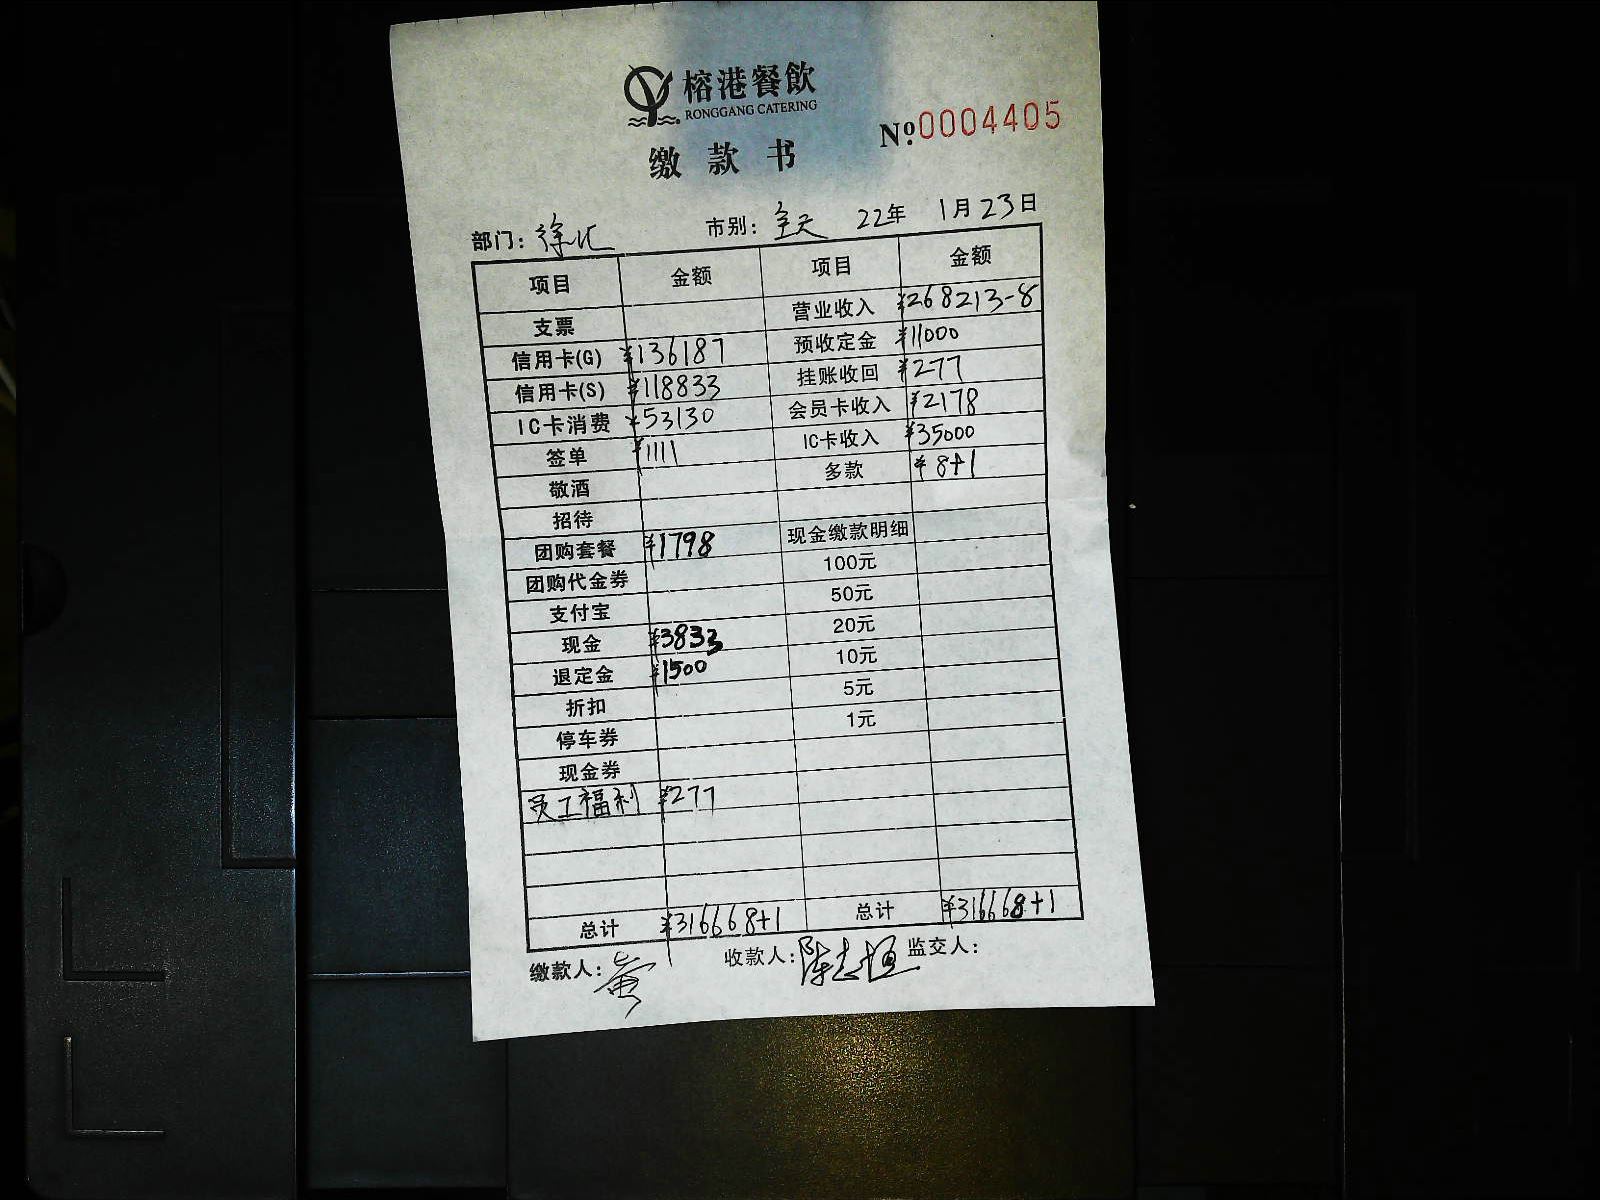 榕港餐飲
RONGGANG CATERING
№0004405
缴款书
部门：徐汇 市别：全天 22年 1月23日
项目 金额 项目 金额
支票 营业收入 ¥268213-8
信用卡(G) ¥136187 预收定金 ¥11000
信用卡(S) ¥118833 挂账收回 ¥277
IC卡消费 ¥53130 会员卡收入 ¥2178
签单 ¥1111 IC卡收入 ¥35000
敬酒 多款 ¥8+1
招待
团购套餐 ¥1798 现金缴款明细
团购代金券 100元
支付宝 50元
现金 ¥3833 20元
退定金 ¥1500 10元
折扣 5元
停车券 1元
现金券
员工福利 ¥277
总计 ¥316668+1 总计 ¥316668+1
缴款人： 收款人：陈志恒 监交人：